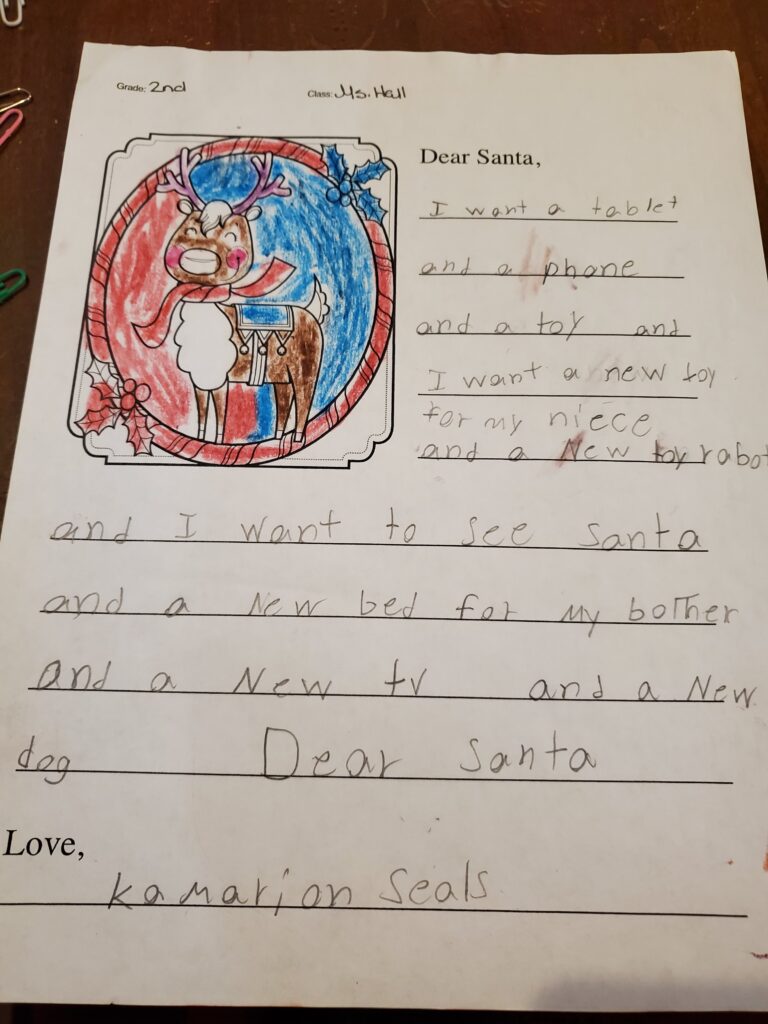 Grade: 2nd
Class: Ms. Hall
Dear Santa,
I want a tablet
and a phone
and a toy and
I want a new toy
for my niece
and a New toy rabot
and I want to see santa
and a New bed for my bother
and a New tv and a New
dog Dear santa
Love,
kamarion Seals